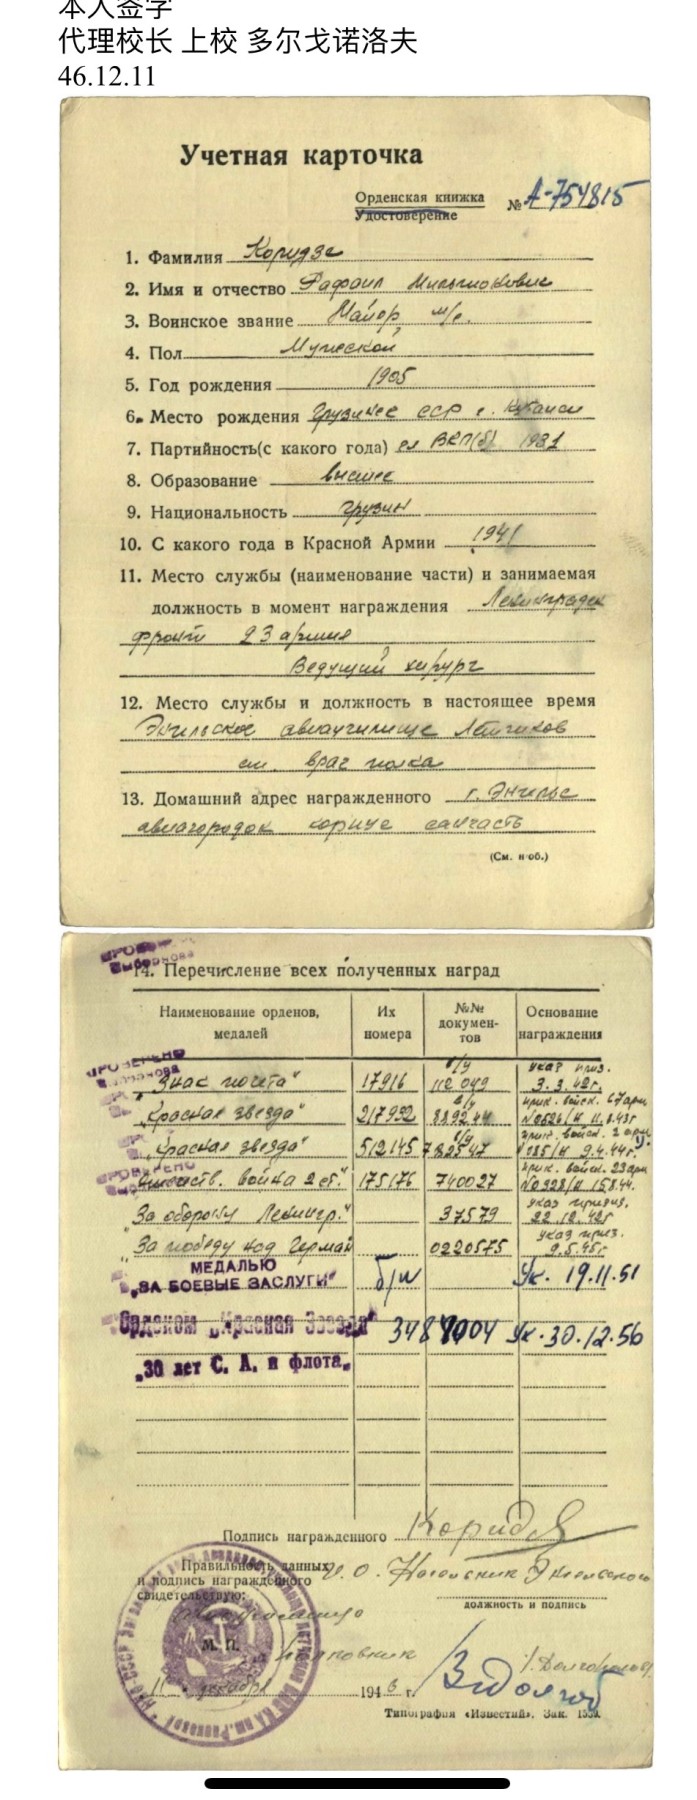 本人签字
代理校长 上校 多尔戈诺洛夫
46.12.11
Учетная карточка
Орденская книжка
Удостоверение
№ А-754815
1. Фамилия Коридзе
2. Имя и отчество Рафаил
3. Воинское звание Майор м/с.
4. Пол Мужской
5. Год рождения 1905
6. Место рождения Грузинс ССР г. Кутаиси
7. Партийность(с какого года) ВКП(б) 1931
8. Образование высшее
9. Национальность грузин
10. С какого года в Красной Армии 1941
11. Место службы (наименование части) и занимаемая
должность в момент награждения Ленинградск
фронт 23 армия
Ведущий хирург
12. Место службы и должность в настоящее время
Энгельское авиаучилище Летчиков
ст. врач полка
13. Домашний адрес награжденного г. Энгельс
авиагородок корпус санчасть
(См. н об.)
ПРОВЕРЕНО
14. Перечисление всех полученных наград
Наименование орденов, медалей Их номера №№ докумен-тов Основание награждения
"Знак почета" 17916 б/у 112049 указ през. 3.3.42г.
"Красная звезда" 217992 б/у 889244 прик. войск. 67 арм №0526/н 11.8.43г
"Красная звезда" 512145 б/у 782547 прик. войск. 2 арм №085/н 9.4.44г.
ПРОВЕРЕНО
Отечеств. война 2 ст." 175176 740027 прик. войск. 23 арм №0328/н 15.8.44.
"За оборону Ленингр." 37579 указ през. 22.12.42г
"За победу над Герман 0220575 указ през. 9.5.45г.
МЕДАЛЬЮ
„ЗА БОЕВЫЕ ЗАСЛУГИ" б/н Ук. 19.11.51
Орденом „Красная Звезда" 3487004 Ук. 30.12.56
„30 лет С. А. и флота„
Подпись награжденного Коридзе
Правильность данных
и подпись награжденного
свидетельствую:
И. О. Начальник Энгельского
должность и подпись
М. П.
Полковник
11 декабря 1946 г.
Типография «Известий». Зак. 1559.